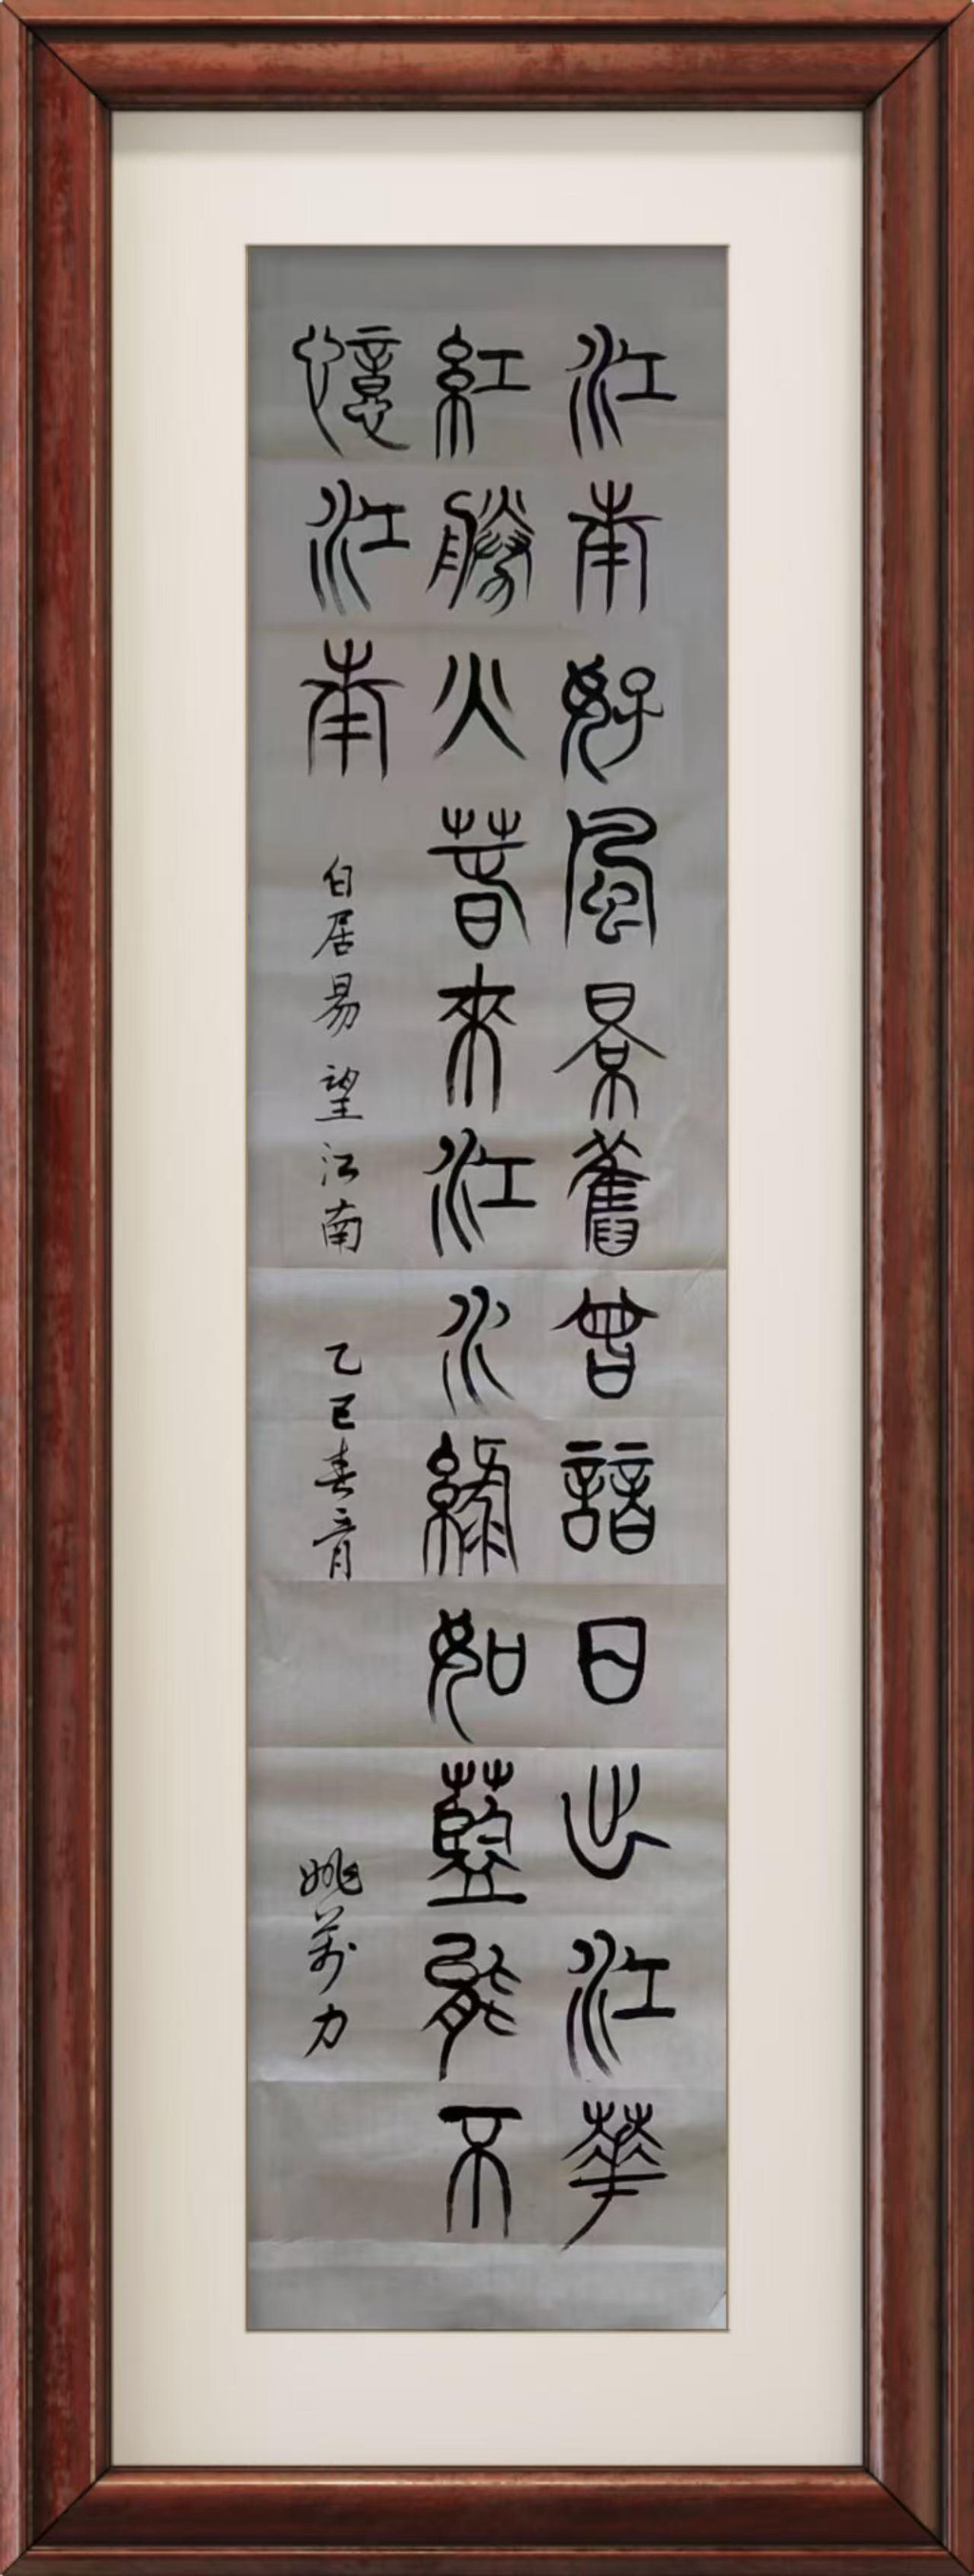 江南好風景舊曾諳日出江華
紅勝火春來江水綠如藍能不
憶江南 白居易 望江南 乙巳春 姚萬力